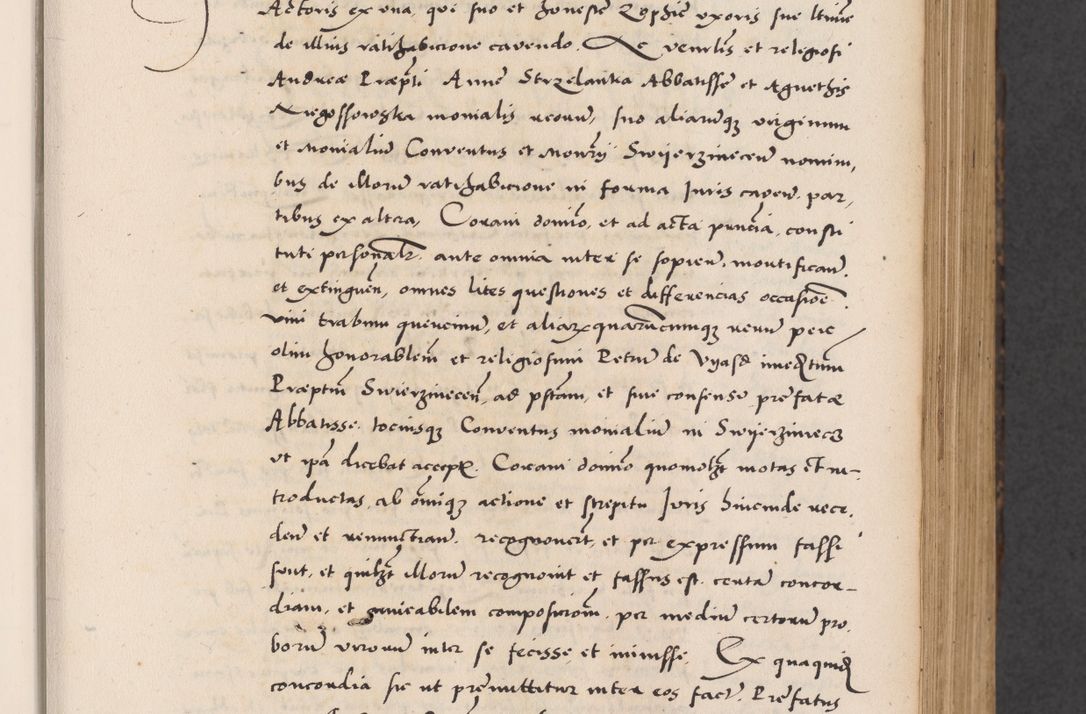 Actoris ex una, qui suo et honeste Zophie uxoris sue ltime
de illius ratihabicione cavendo. Ac venrlis et religiosi
Andreæ Præpti Anne Strzelanka Abbatisse et Agnethis
Niegossowska monialis reorum, suo aliarumqz virginum
et Monialiu Conventus et Monrÿ Swijerzineceñ nomini,
bus de illoru ratihabicione in forma Juris caveñ. par,
tibus ex altera, Coram domino, et ad acta pñcia, consti
tuti personalr. ante omnia inter se sopieñ, mortificañ.
et extingueñ, omnes lites questiones et differencias occasioe
vini trabium quercinu, et aliarz quarucumqz reru per
olim honorablem et religiosum Petru de Vyasd
Præptum Swierzineceñ, ad pstam, et sine consensu prefatæ
Abbatisse tociusqz Conventus monialiu in Swijerzinecz
ut ipa dicebat accept. Coram domino quomolzt motas et in-
troductas, ab omiqz actione et strepitu Juris hincinde rece,
deñ et renunctiañ. recognoverut, et per expressum fassi
sunt, et quilzt illoru recognovit et fassus est. certã concor-
diam, et amicabilem composicioem per mediu certoru pro,
boru viroru inter se fecisse et inivisse. Ex quaquid
concordia sic ut premittitur inter eos facta, Prefatus